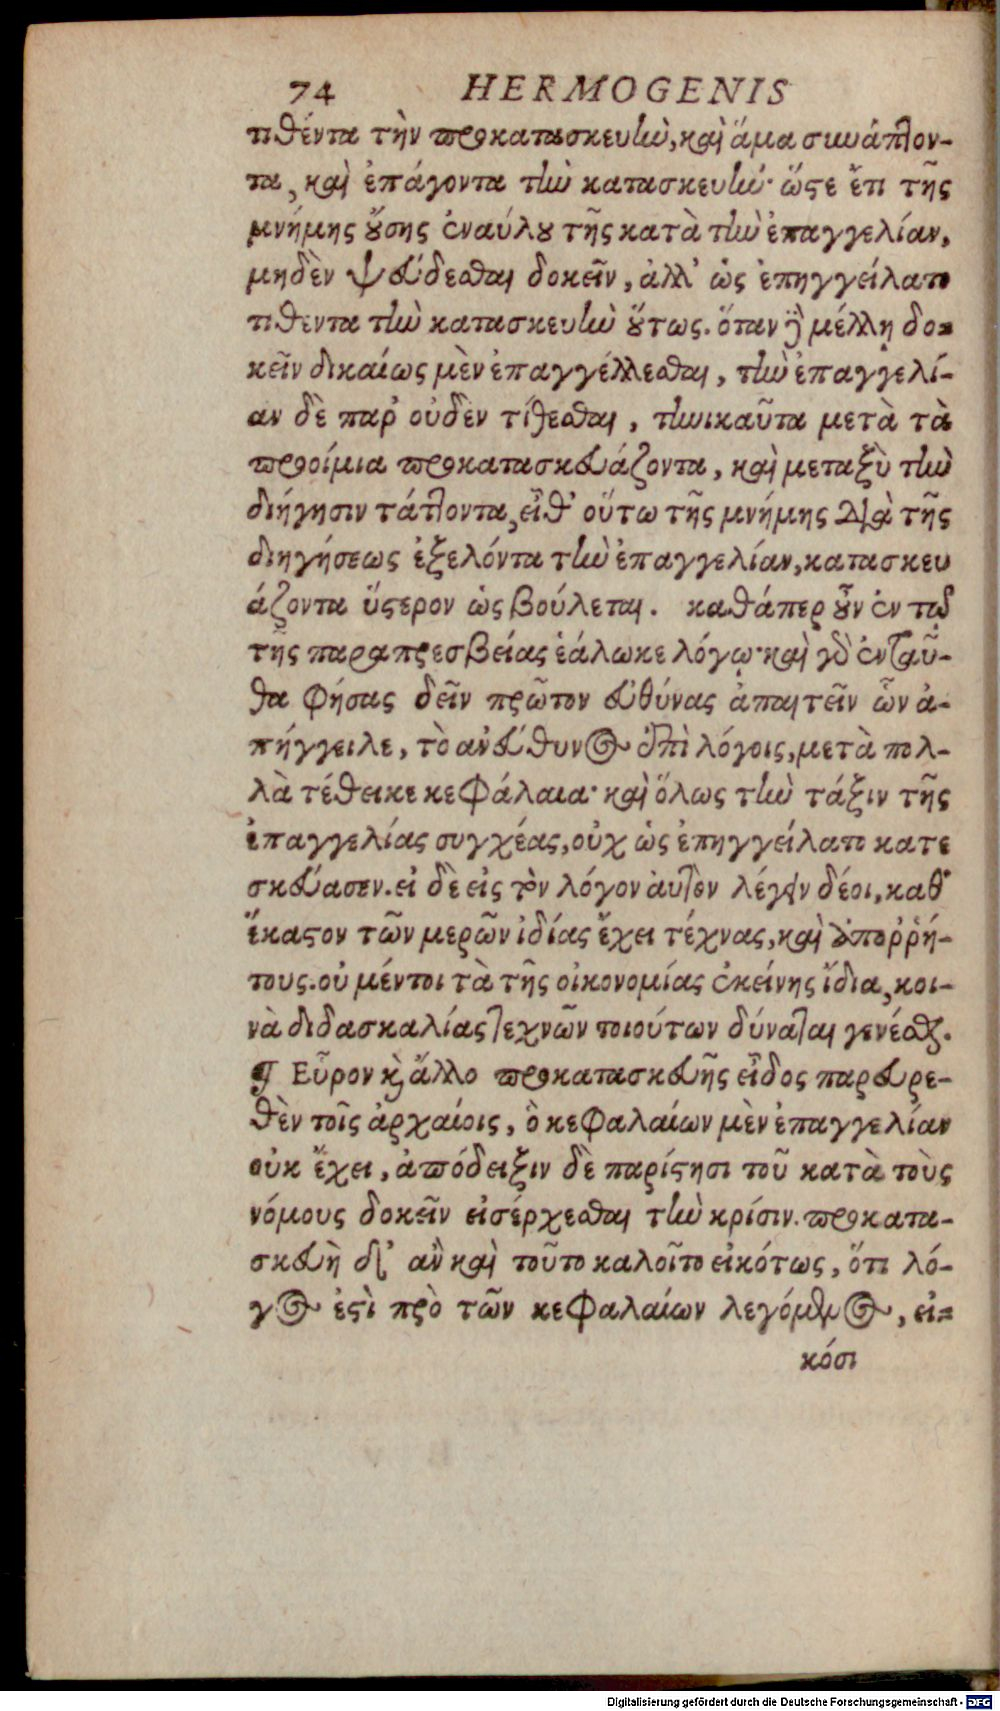 74 HERMOGENIS
τιθέντα τὴν προκατασκευὴν, καὶ ἅμα συνάπτον-
τα, καὶ ἐπάγοντα τὴν κατασκευήν· ὥστε ἔτι τῆς
μνήμης οὔσης ἐναύλου τῆς κατὰ τὴν ἐπαγγελίαν,
μηδὲν ψεύδεσθαι δοκεῖν, ἀλλ' ὡς ἐπηγγείλατο
τιθεντα τὴν κατασκευὴν οὕτως. ὅταν δὲ μέλλῃ δο-
κεῖν δικαίως μὲν ἐπαγγέλλεσθαι, τὴν ἐπαγγελί-
αν δὲ παρ' οὐδὲν τίθεσθαι, τηνικαῦτα μετὰ τὰ
προοίμια προκατασκευάζοντα, καὶ μεταξὺ τὴν
διήγησιν τάττοντα, εἶθ' οὕτω τῆς μνήμης διὰ τῆς
διηγήσεως ἐξελόντα τὴν ἐπαγγελίαν, κατασκευ
άζοντα ὕστερον ὡς βούλεται. καθάπερ οὖν ἐν τῷ
τῆς παραπρεσβείας ἑάλωκε λόγῳ· καὶ γὰρ ἐνταῦ-
θα φήσας δεῖν πρῶτον εὐθύνας ἀπαιτεῖν ὧν ἀ-
πήγγειλε, τὸ ἀνεύθυνος ἐπὶ λόγοις, μετὰ πολ-
λὰ τέθεικε κεφάλαια· καὶ ὅλως τὴν τάξιν τῆς
ἐπαγγελίας συγχέας, οὐχ ὡς ἐπηγγείλατο κατε
σκεύασεν. εἰ δὲ εἰς τὸν λόγον αὐτὸν λέγειν δέοι, καθ'
ἕκαστον τῶν μερῶν ἰδίας ἔχει τέχνας, καὶ ἀπορῥή-
τους. οὐ μέντοι τὰ τῆς οἰκονομίας ἐκείνης ἴδια, κοι-
νὰ διδασκαλίας τεχνῶν τοιούτων δύναται γενέσθαι.
¶ Εὗρον καὶ ἄλλο προκατασκευῆς εἶδος παρευρε-
θὲν τοῖς ἀρχαίοις, ὃ κεφαλαίων μὲν ἐπαγγελίαν
οὐκ ἔχει, ἀπόδειξιν δὲ παρίστησι τοῦ κατὰ τοὺς
νόμους δοκεῖν εἰσέρχεσθαι τὴν κρίσιν. προκατα-
σκευὴ δ' ἂν καὶ τοῦτο καλοῖτο εἰκότως, ὅτι λό-
γος ἐστὶ πρὸ τῶν κεφαλαίων λεγόμενος, εἰ-
κόσι
Digitalisierung gefördert durch die Deutsche Forschungsgemeinschaft - DFG